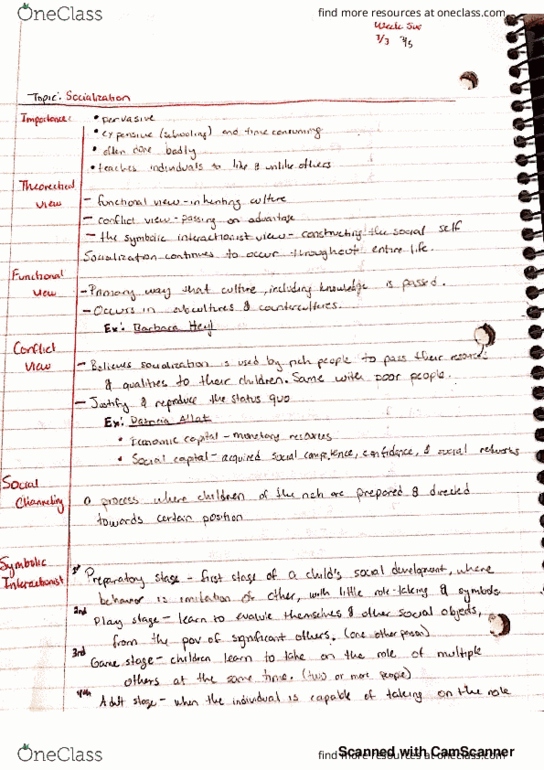 OneClass
find more resources at oneclass.com
Week Six
3/3 3/5
Topic: Socialization
Importance:
• pervasive
• expensive (schooling) and time consuming
• often done badly
• teaches individuals to like & unlike others
Theoretical View
- functional view - inheriting culture
- conflict view - passing on advantage
- the symbolic interactionist view - constructing the social self
Socialization continues to occur throughout entire life.
Functional View
- Primary way that culture, including knowledge is passed.
- Occurs in subcultures & countercultures.
Ex: Barbara Heyl
Conflict View
- Believes socialization is used by rich people to pass their
& qualities to their children. Same with poor people.
- Justify & reproduce the status quo
Ex:
• Economic capital - monetary resources
• Social capital - acquired social competence, confidence, & social networks
Social Channeling
a process where children of the rich are prepared & directed
towards certain position
Symbolic Interactionist
1st Preparatory stage - first stage of a child's social development, where
behavior is imitation of other, with little role-taking & symbols
2nd Play stage - learn to evaluate themselves & other social objects,
from the pov of significant others. (one other person)
3rd Game stage - children learn to take on the role of multiple
others at the same time. (two or more people)
4th Adult stage - when the individual is capable of taking on the role
OneClass
find more resources at oneclass.com
Scanned with CamScanner